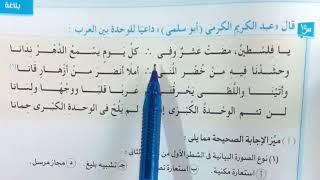 بلاغة
س١٥ قال «عبد الكريم الكرمي (أبو سلمى)» داعيًا للوحدة بين العرب :
يا فلسطين، مضت عشر وفى ∴ كل يوم يسمع الدهر ندانا
وحشدنا فيه من خضر المنى أملا أنضر من أزهار قانا
وأتينا واللظى يحرقنا قلبا ووجها ولسانا
لن تتم الوحدة الكبرى إذا لم يلح فى الوحدة الكبرى حمانا
(١) ميّز الإجابة الصحيحة مما يلى :
(١) نوع الصورة البيانية فى الشطر الأول من الثانى :
ب استعارة مكنية. استعارة تص تشبيه بليغ. مجاز مرسل.